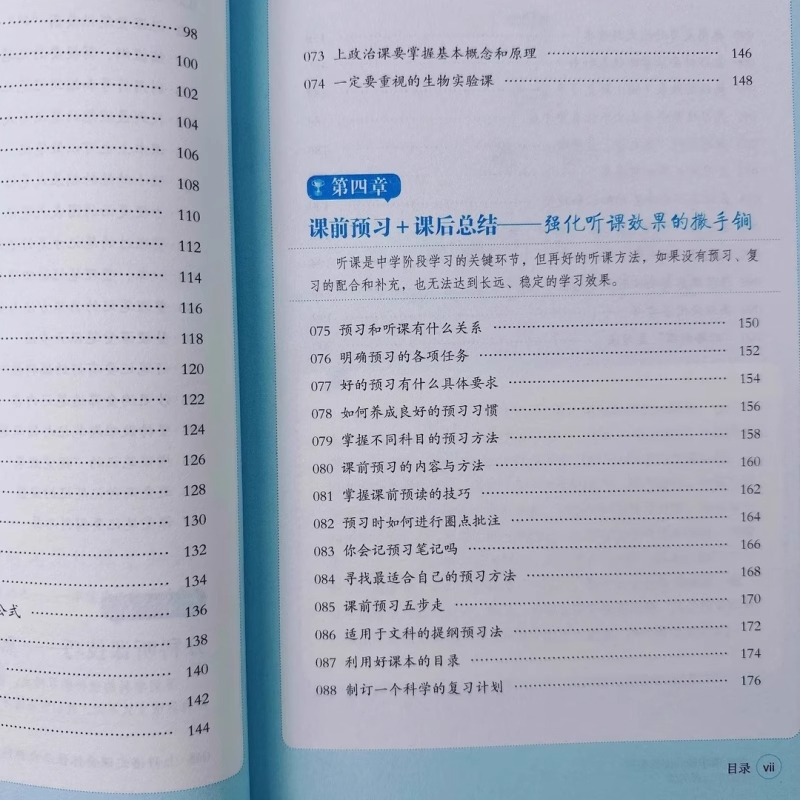 98
100
102
104
106
108
110
112
114
116
118
120
122
124
126
128
130
132
134
公式 136
138
140
142
144
073 上政治课要掌握基本概念和原理 146
074 一定要重视的生物实验课 148
第四章
课前预习+课后总结——强化听课效果的撒手锏
听课是中学阶段学习的关键环节，但再好的听课方法，如果没有预习、复
习的配合和补充，也无法达到长远、稳定的学习效果。
075 预习和听课有什么关系 150
076 明确预习的各项任务 152
077 好的预习有什么具体要求 154
078 如何养成良好的预习习惯 156
079 掌握不同科目的预习方法 158
080 课前预习的内容与方法 160
081 掌握课前预读的技巧 162
082 预习时如何进行圈点批注 164
083 你会记预习笔记吗 166
084 寻找最适合自己的预习方法 168
085 课前预习五步走 170
086 适用于文科的提纲预习法 172
087 利用好课本的目录 174
088 制订一个科学的复习计划 176
目录 vii